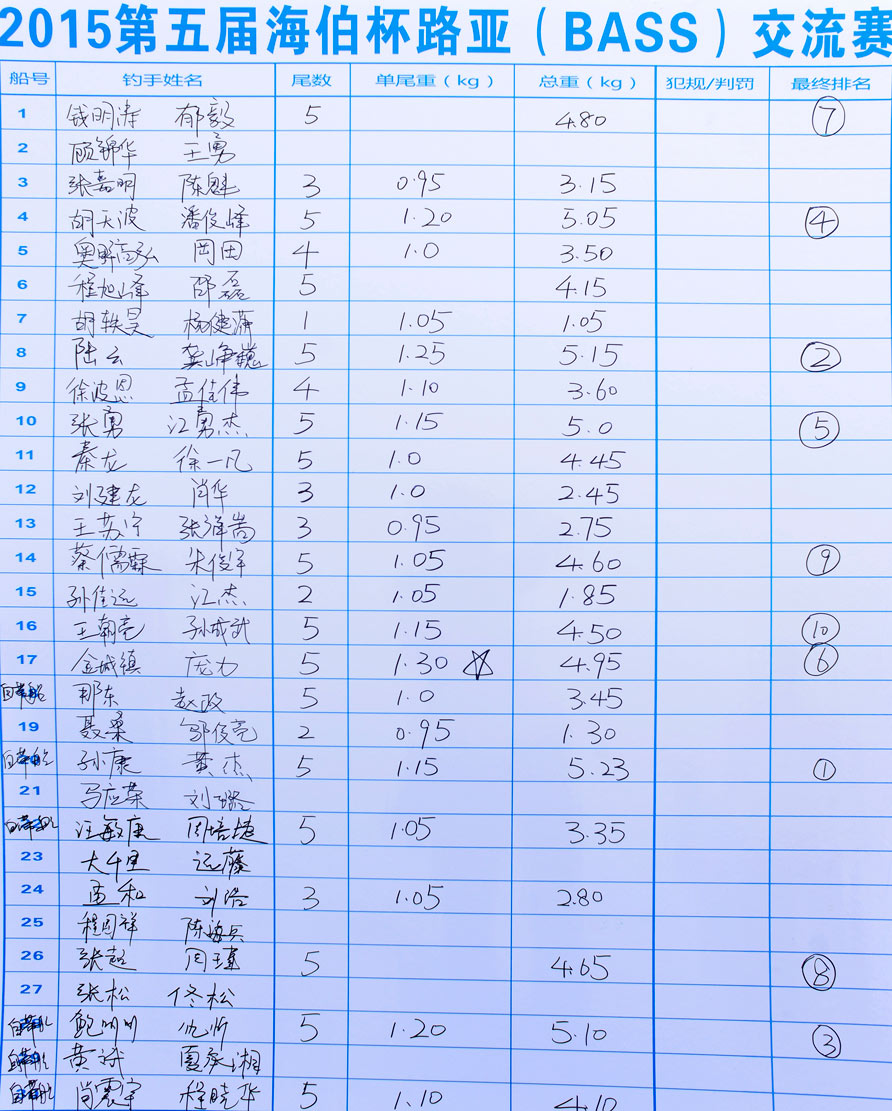 2015第五届海伯杯路亚（BASS）交流赛
船号 钓手姓名 尾数 单尾重（kg） 总重（kg） 犯规/判罚 最终排名
1 钱明涛 郁毅 5 4.80 7
2 顾锦华 王勇
3 张嘉明 陈魁 3 0.95 3.15
4 胡天波 潘俊峰 5 1.20 5.05 4
5 奥野高弘 岡田 4 1.0 3.50
6 程旭峰 邵磊 5 4.15
7 胡轶旻 杨健蒲 1 1.05 1.05
8 陆云 龚峥巍 5 1.25 5.15 2
9 徐波恩 孟佳伟 4 1.10 3.60
10 张勇 江勇杰 5 1.15 5.0 5
11 秦龙 徐一凡 5 1.0 4.45
12 刘建龙 肖华 3 1.0 2.45
13 王苏宁 张洋嵩 3 0.95 2.75
14 蔡儒霖 朱俊宇 5 1.05 4.60 9
15 孙佳远 江杰 2 1.05 1.85
16 王朝亮 孙成武 5 1.15 4.50 10
17 金城镇 庞力 5 1.30 ☆ 4.95 6
自带船 那东 赵政 5 1.0 3.45
19 聂桑 邹俊亮 2 0.95 1.30
自带船 孙康 黄杰 5 1.15 5.23 1
21 马应荣 刘璐
自带船 汪敏康 周培捷 5 1.05 3.35
23 大千里 远藤
24 孟和 刘浩 3 1.05 2.80
25 程国祥 陈海兵
26 张超 闫建 5 4.65 8
27 张松 佟松
自带船 鲍明明 仇忻 5 1.20 5.10 3
自带船 黄斌 夏庭湘
自带船 尚震宇 程晓华 5 1.10 4.10